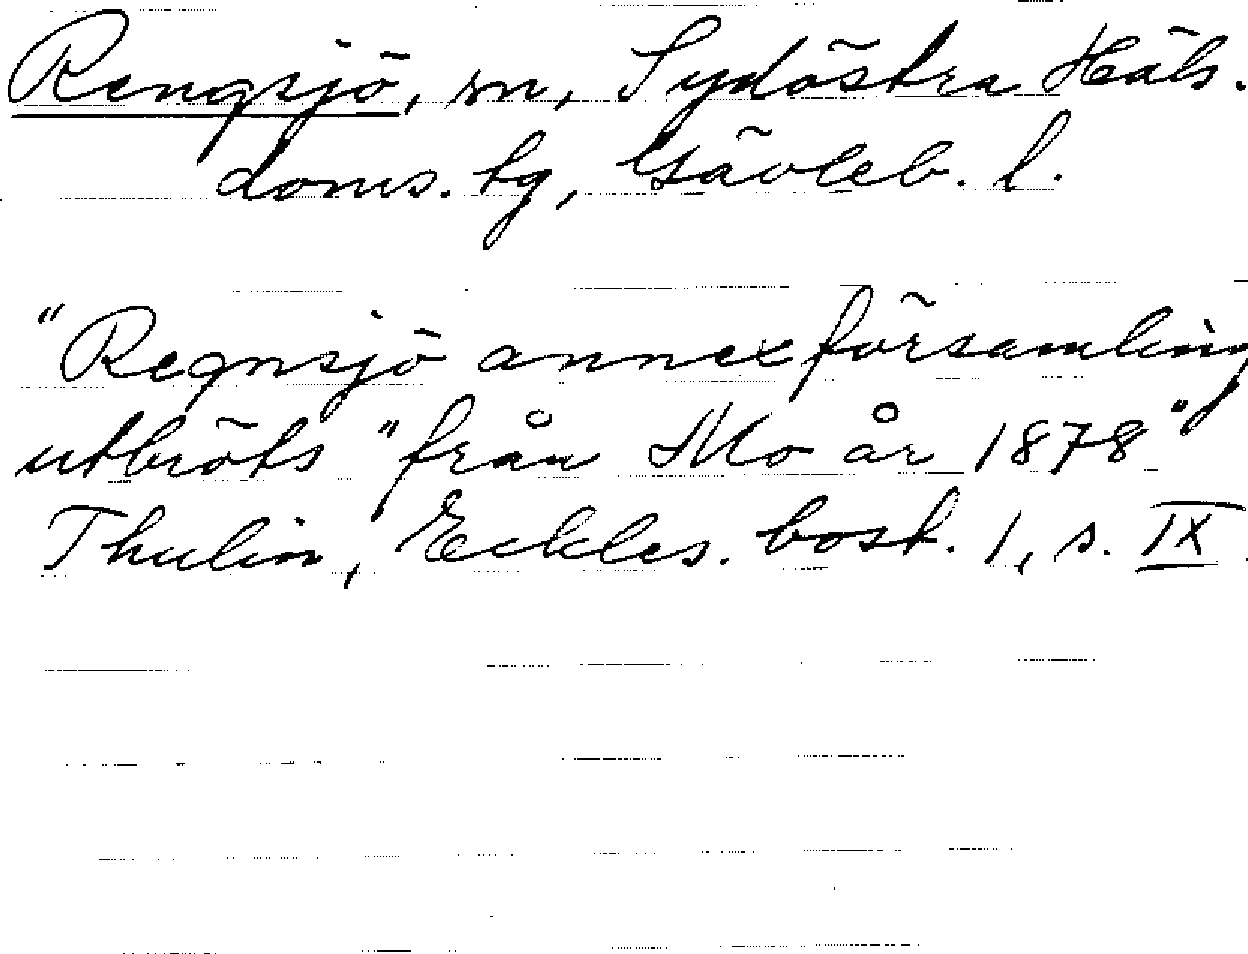 Rengsjö, sn, Sydöstra Häls.
doms. tg, Gävleb. l.
"Regnsjö annexförsamling
utbröts "från Mo år 1878"
Thulin, Eckles. bost. 1, s. IX